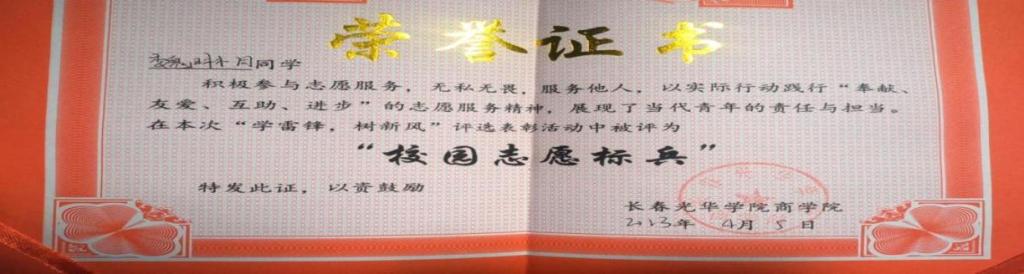 荣誉证书
同学
积极参与志愿服务，无私无畏，服务他人，以实际行动践行“奉献、
友爱、互助、进步”的志愿服务精神，展现了当代青年的责任与担当。
在本次“学雷锋，树新风”评选表彰活动中被评为
“校园志愿标兵”
特发此证，以资鼓励
长春光华学院商学院
2013年 4月 5日